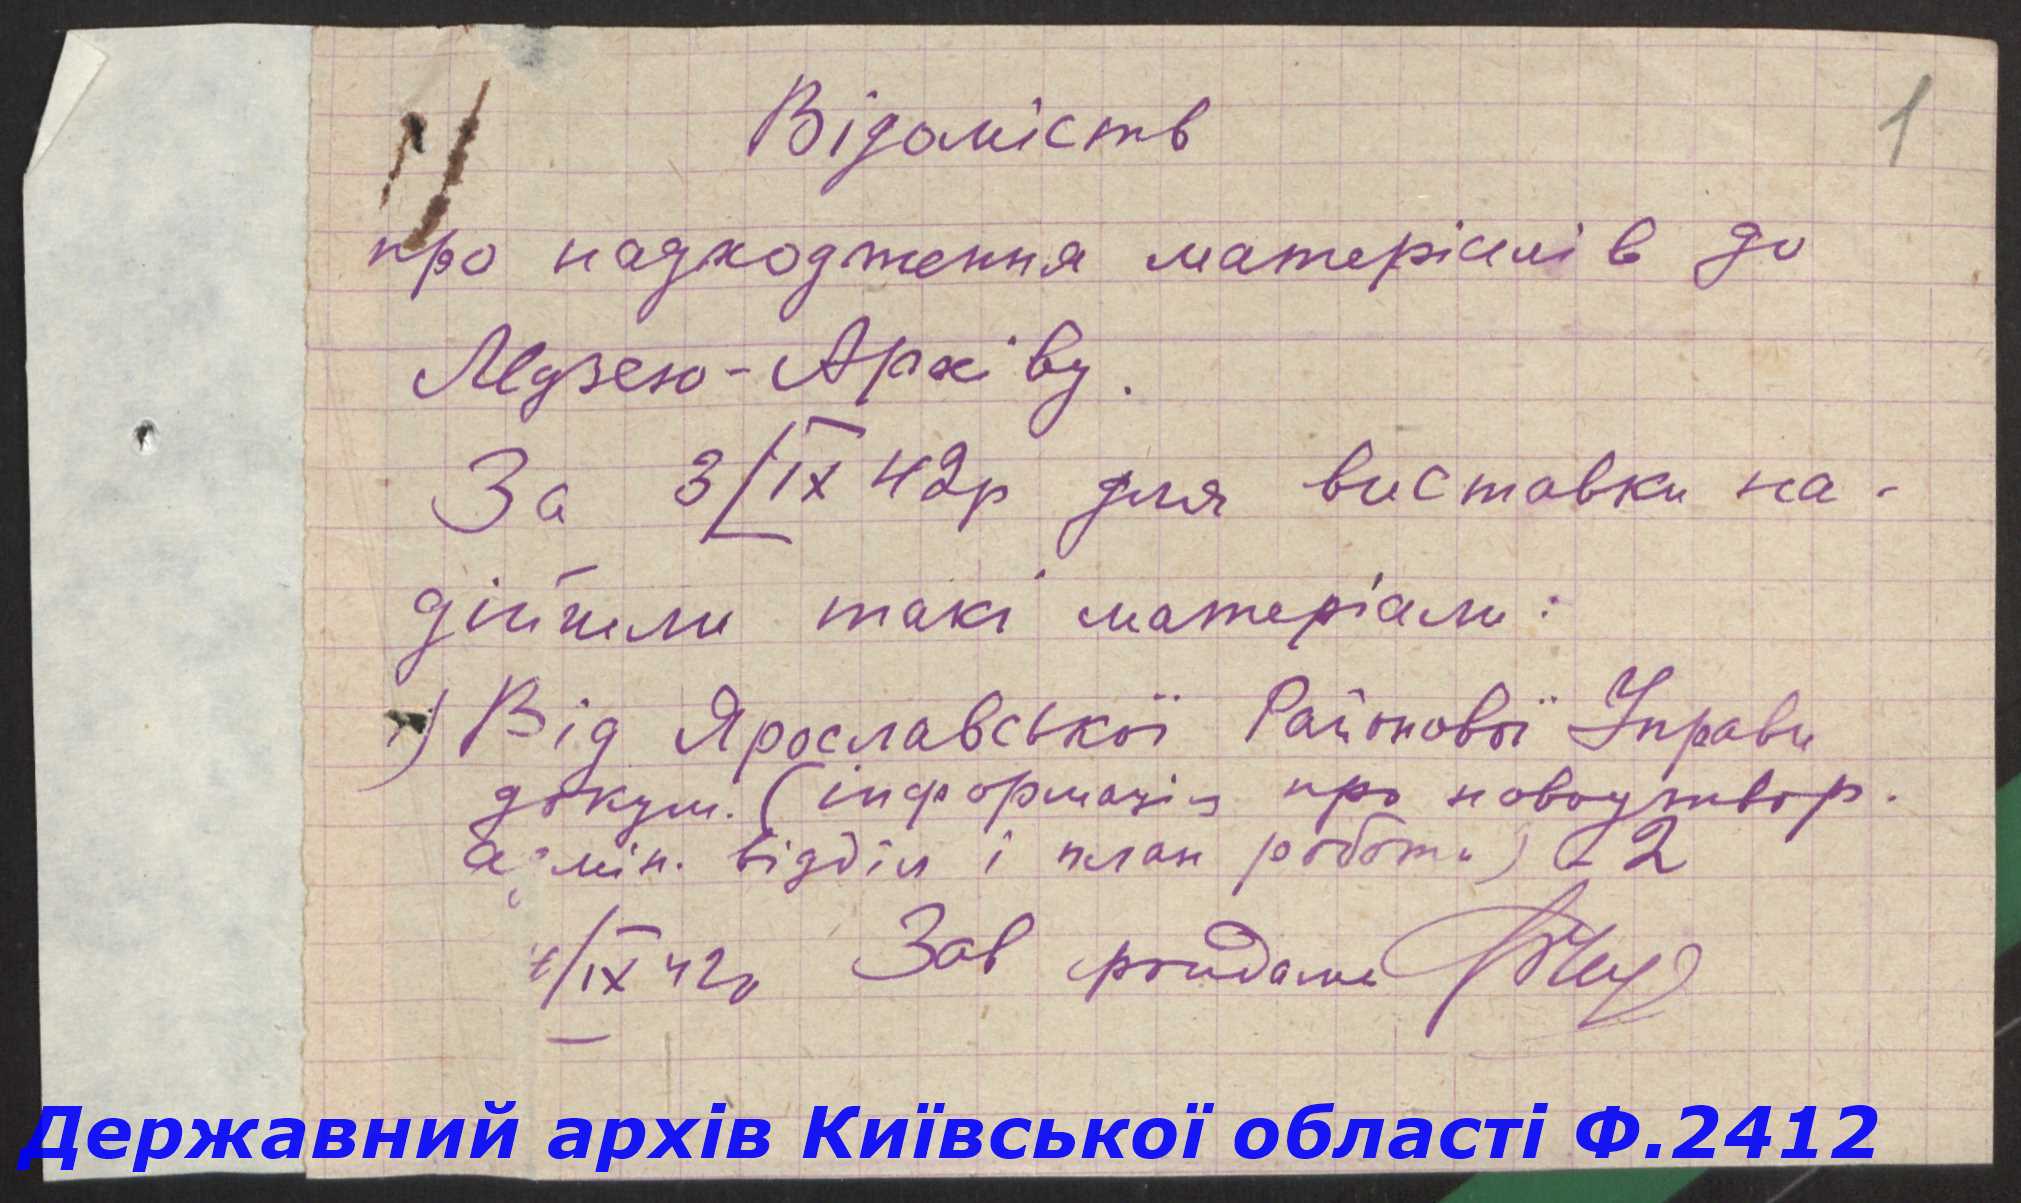 1
Відомість
про надходження матеріялів до
Музею-Архіву.
За 3/IX 42р для виставки на-
дійшли такі матеріали:
1) Від Ярославської Районової Управи
докум. (інформація про новоутвор.
адмін. відділ і план роботи) - 2
4/IX 42р Зав
Державний архів Київської області Ф.2412